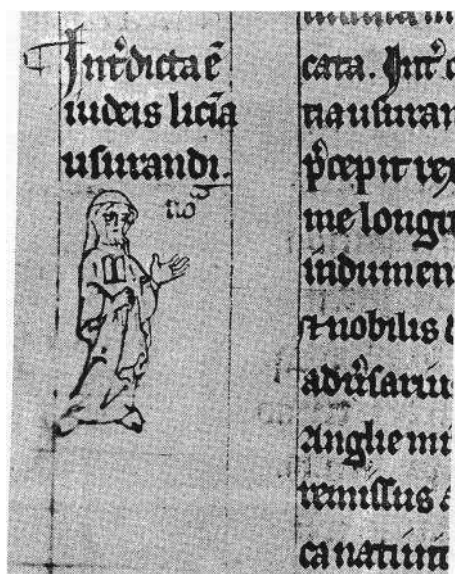 Int͛dicta ē
iudeis licīa
usurandi.
no
cata. Int͛
tia usuran
p͛cepit
me longu
indumen
st nobilis
adu͛sariu
Anglie mi
remissus
ca natiuit